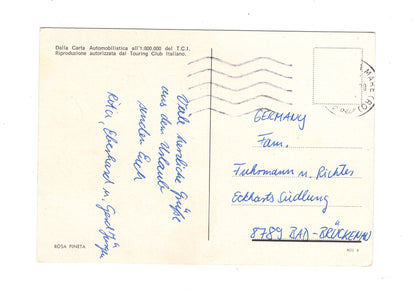 Dalla Carta Automobilistica all'1:000.000 del T.C.I.
Riproduzione autorizzata dal Touring Club Italiano.
Viele herzliche Grüße
aus dem Urlaub
senden Euch
Rita, Eberhard u. Gerd
GERMANY
Fam.
Fuhrmann u. Richter
Eckharts Siedlung
8789 BAD-BRÜCKENAU
MARE (RO)
ROSA PINETA